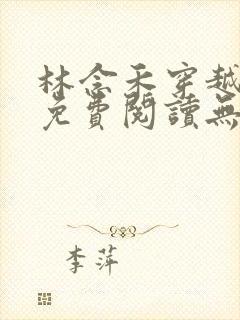 林念禾穿越
免費閱讀無
李萍